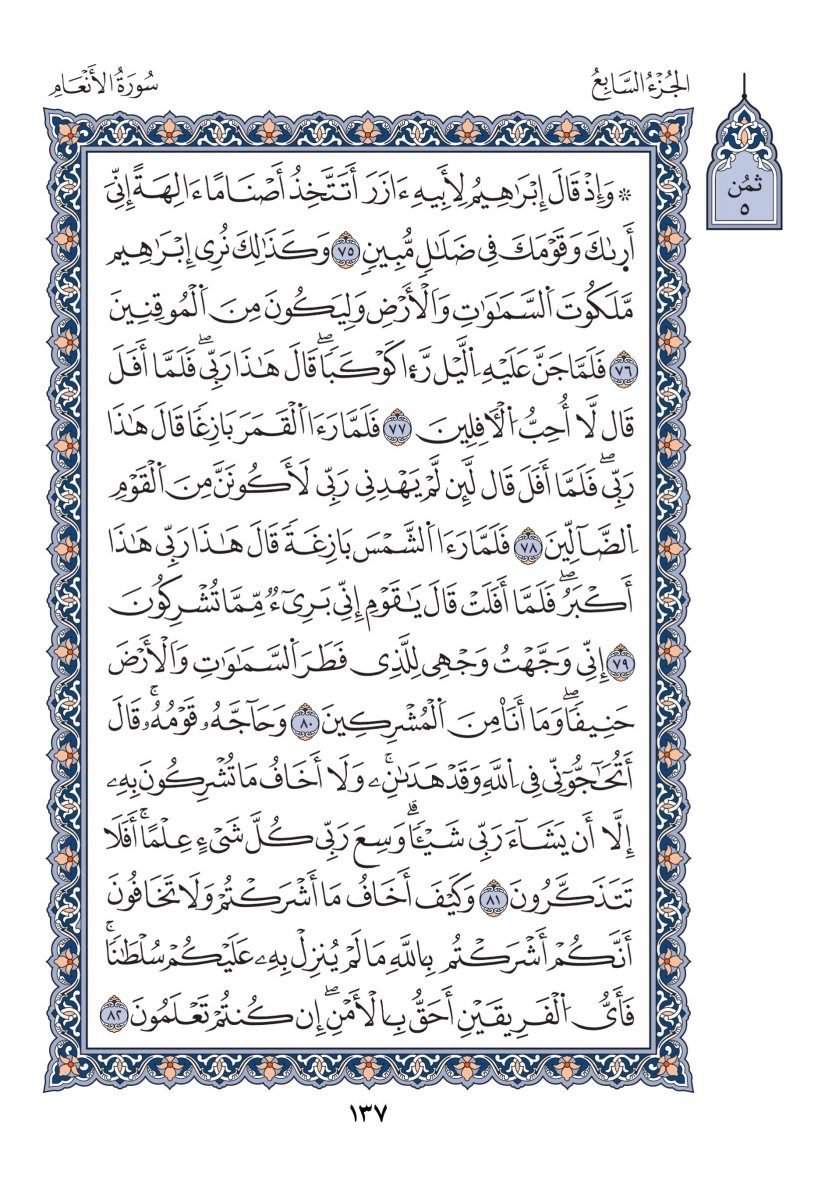 الجُزْءُ السَّابِعُ
سُورَةُ الأَنْعَامِ
ثُمُن
٥
۞ وَإِذْ قَالَ إِبْرَٰهِيمُ لِأَبِيهِ ءَازَرَ أَتَتَّخِذُ أَصْنَامًا ءَالِهَةً إِنِّىٓ
أَرٜىٰكَ وَقَوْمَكَ فِى ضَلَٰلٖ مُّبِينٖ ٧٥ وَكَذَٰلِكَ نُرِى إِبْرَٰهِيم
مَّلَكُوتَ اَ۬لسَّمَٰوَٰتِ وَالْأَرْضِ وَلِيَكُونَ مِنَ اَ۬لْمُوقِنِينَ
٧٦ فَلَمَّا جَنَّ عَلَيْهِ اِ۬لَّيْل رَّءٜا كَوْكَبٗاۖ قَالَ هَٰذَا رَبِّىۖ فَلَمَّا أَفَلَ
قَال لَّا أُحِبُّ اُ۬لْأٓفِلِينَ ٧٧ فَلَمَّا رَءَا اَ۬لْقَمَرَ بَازِغٗا قَالَ هَٰذَا
رَبِّىۖ فَلَمَّا أَفَلَ قَال لَّئِن لَّمْ يَهْدِنِى رَبِّى لَأَكُونَنَّ مِنَ اَ۬لْقَوْمِ
اِ۬لضَّآلِّينَ ٧٨ فَلَمَّا رَءَا اَ۬لشَّمْسَ بَازِغَةٗ قَالَ هَٰذَا رَبِّى هَٰذَا
أَكْبَرُۖ فَلَمَّا أَفَلَتْ قَالَ يَٰقَوْمِ إِنِّى بَرِىٓءٞ مِّمَّا تُشْرِكُونَ
٧٩ إِنِّى وَجَّهْتُ وَجْهِى لِلَّذِى فَطَرَ اَ۬لسَّمَٰوَٰتِ وَالْأَرْضَ
حَنِيفٗاۖ وَمَا أَنَا۠ مِنَ اَ۬لْمُشْرِكِينَ ٨٠ وَحَآجَّهُۥ قَوْمُهُۥۚ قَالَ
أَتُحَٰجُّوٓنِّى فِى اِ۬للَّهِ وَقَدْ هَدَىٰنِۦۚ وَلَا أَخَافُ مَا تُشْرِكُونَ بِهِۦ
إِلَّا أَن يَشَآءَ رَبِّى شَيْـٔٗاۗ وَسِعَ رَبِّى كُلَّ شَىْءٍ عِلْمًاۚ أَفَلَا
تَتَذَكَّرُونَ ٨١ وَكَيْفَ أَخَافُ مَا أَشْرَكْتُمْ وَلَا تَخَافُونَ
أَنَّكُمْ أَشْرَكْتُم بِاللَّهِ مَا لَمْ يُنزِلْ بِهِۦ عَلَيْكُمْ سُلْطَٰنٗاۚ
فَأَىُّ اُ۬لْفَرِيقَيْنِ أَحَقُّ بِالْأَمْنِۖ إِن كُنتُمْ تَعْلَمُونَ ٨٢
١٣٧